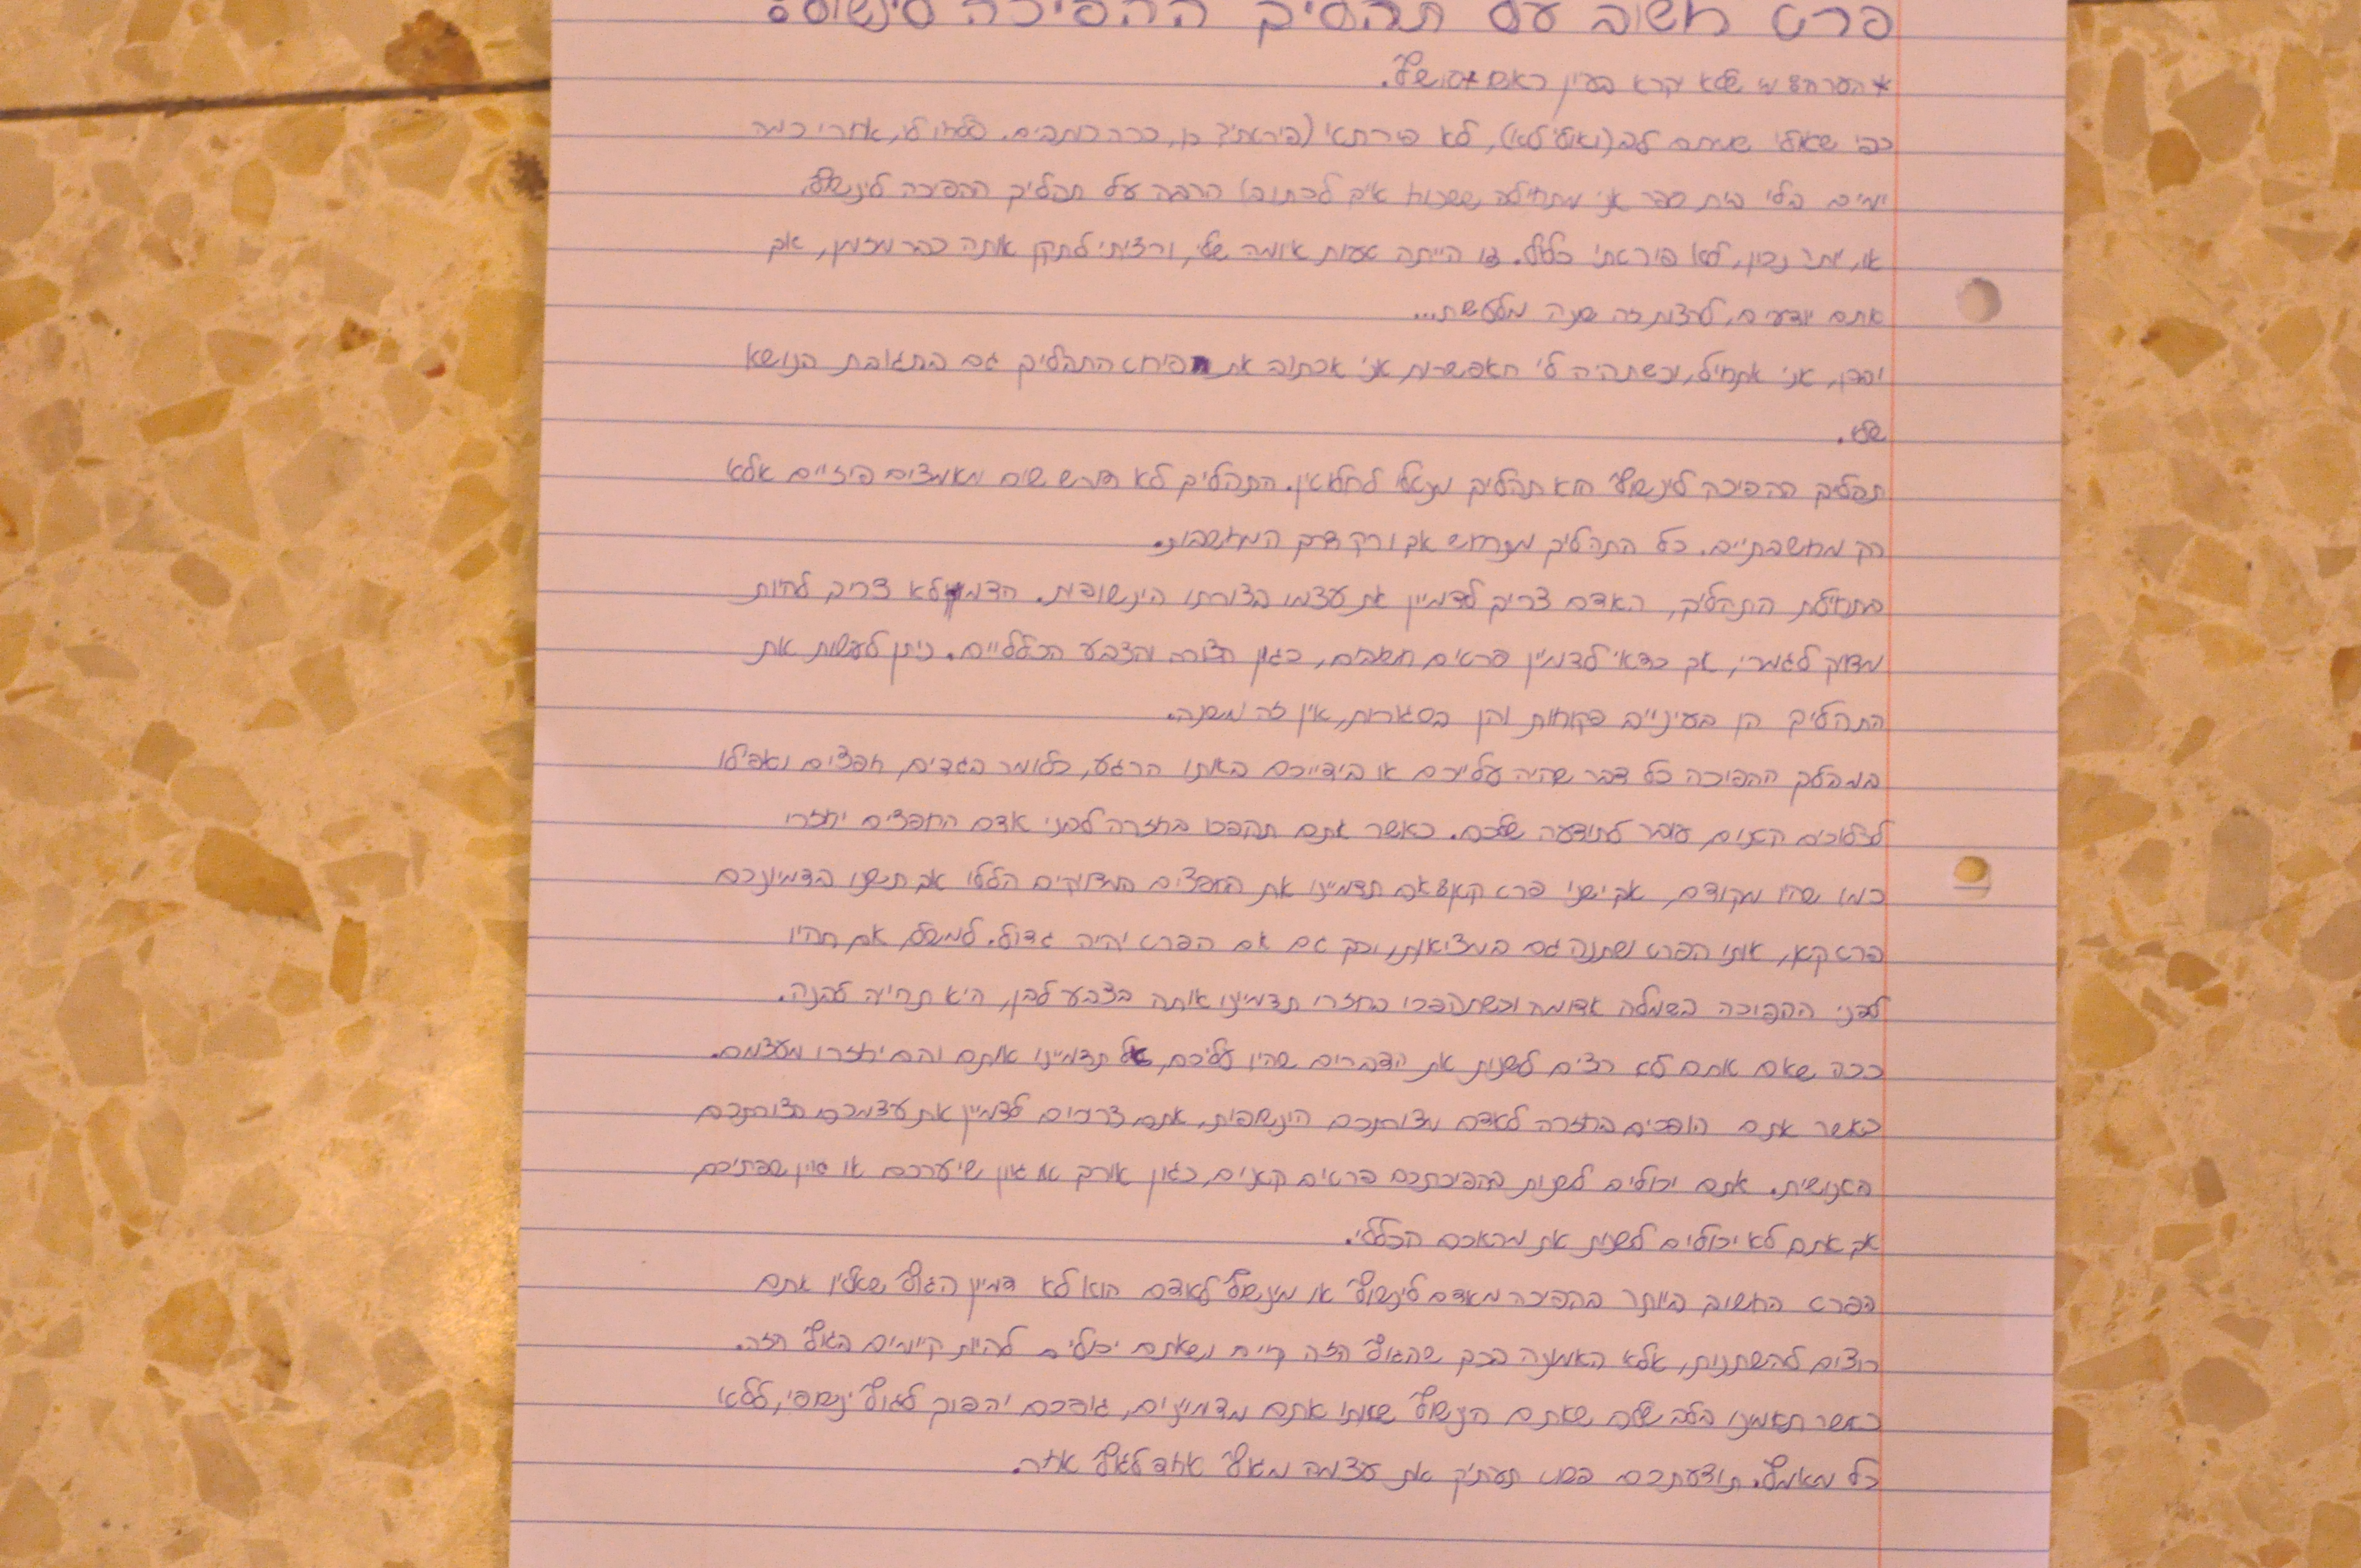 פרט חשוב על תהליך ההפיכה לינשוף:
* הערה: מי שלא יקרא בעיון ראשו
כפי שאולי שמתם לב (ואולי לא), לא פירתתי (פיראתי? כן, ככה כותבים. סלחו לי, אחרי כמה
ימים בלי בית ספר אני מתחילה לשכוח איך לכתוב) הרבה על תהליך ההפיכה לינשוף,
או, יותר נכון, לא פיראתי כלל. זו הייתה טעות איומה שלי, ורציתי לתקן אותה כבר מזמן, אך
אתם יודעים, לעצות זה שנה מלטשת...
ובכן, אני אתחיל, וכשתהיה לי האפשרות אני אכתוב את פירוט התהליך גם בתגובת הנושא
שלי.
תהליך ההפיכה לינשוף הוא תהליך מנטלי לחלוטין. התהליך לא דורש שום מאמצים פיזיים אלא
רק מחשבתיים. כל התהליך מתרחש אך ורק דרך המחשבות.
בתחילת התהליך, האדם צריך לדמיין את עצמו בצורתו הינשופית. הדמיון לא צריך להיות
מדויק לגמרי, אך כדאי לדמיין פרטים חשובים, כגון הצורה והצבע הכלליים. ניתן לעשות את
התהליך הן בעיניים פקוחות והן בסגורות, אין זה משנה.
במהלך ההפיכה כל דבר שהיה עליכם או בידייכם באותו הרגע, כלומר בגדים, חפצים ואפילו
לכלוכים קטנים, עובר לתודעה שלכם. כאשר אתם תהפכו בחזרה לבני אדם החפצים יחזרו
כמו שהיו מקודם, אך ישנו פרט קטן: אם תדמיינו את החפצים המדויקים הללו אך תשנו בדמיונכם
פרט קטן, אותו הפרט ישתנה גם במציאות, וכך גם אם הפרט יהיה גדול. למשל, אם תהיו
לפני ההפיכה בשמלה אדומה וכשתהפכו בחזרה תדמיינו אותה בצבע לבן, היא תהיה לבנה.
ככה שאם אתם לא רוצים לשנות את הדברים שהיו עליכם, אל תדמיינו אותם והם יחזרו מעצמם.
כאשר אתם הופכים בחזרה לאדם מצורתכם הינשופית, אתם צריכים לדמיין את עצמכם בצורתכם
האנושית. אתם יכולים לשנות בהפיכתכם פרטים קטנים, כגון אורך או גוון שיערכם או גוון שפתיכם,
אך אתם לא יכולים לשנות את מראכם הכללי.
הפרט החשוב ביותר בהפיכה מאדם לינשוף או מינשוף לאדם הוא לא דמיון הגוף שאליו אתם
רוצים להשתנות, אלא האמונה בכך שהגוף הזה קיים ושאתם יכולים להיות קיימים בגוף הזה.
כאשר תאמינו בלב שלם שאתם הינשוף שאותו אתם מדמיינים, גופכם יהפוך לגוף ינשופי, ללא
כל מאמץ. תודעתכם פשוט תעתיק את עצמה מגוף אחד לגוף אחר.